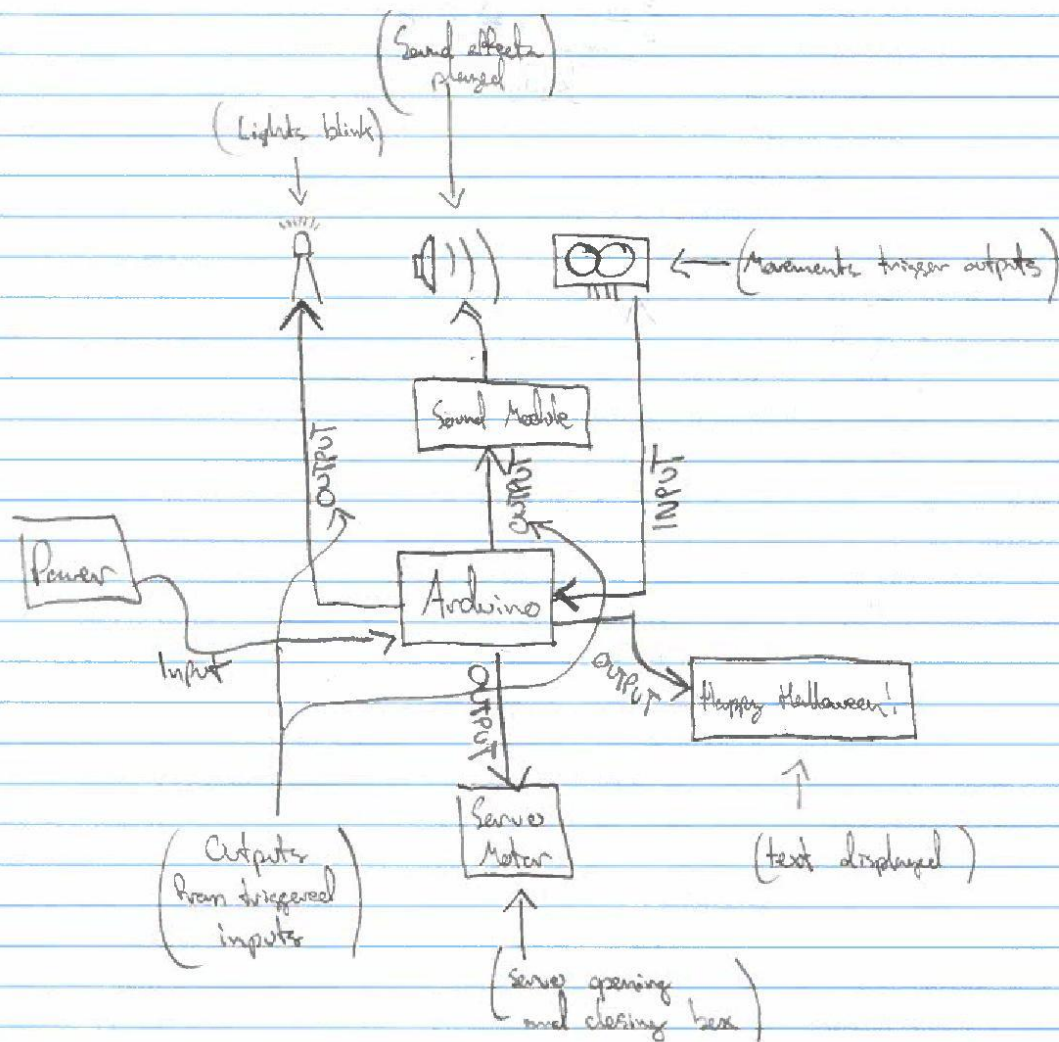 (Sound effects
played)
(Lights blink)
(Movements trigger outputs)
Sound Module
OUTPUT
OUTPUT
INPUT
Power
Arduino
Input
OUTPUT
OUTPUT
Happy Halloween!
Servo
Motor
(text displayed)
(Outputs
from triggered
inputs)
(servo opening
and closing box)